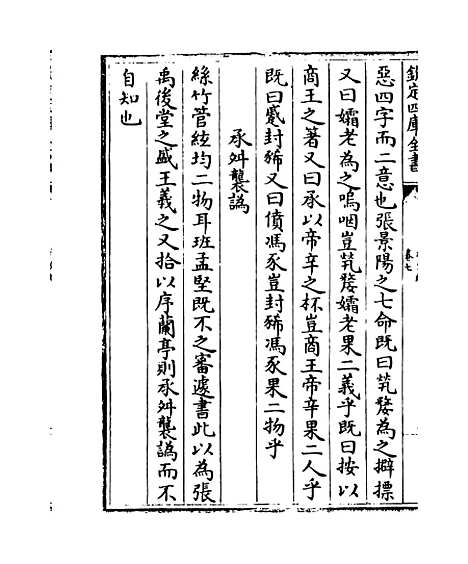 欽定四庫全書
卷七
惡四字而二意也張景陽之七命既曰煢嫠為之擗摽
又曰孀老為之嗚咽豈煢嫠孀老果二義乎既曰按以
商王之著又曰承以帝辛之杯豈商王帝辛果二人乎
既曰蹙封豨又曰僨馮豕豈封豨馮豕果二物乎
承舛襲譌
絲竹管絃均二物耳班孟堅既不之審遽書此以為張
禹後堂之盛王羲之又拾以序蘭亭則承舛襲譌而不
自知也